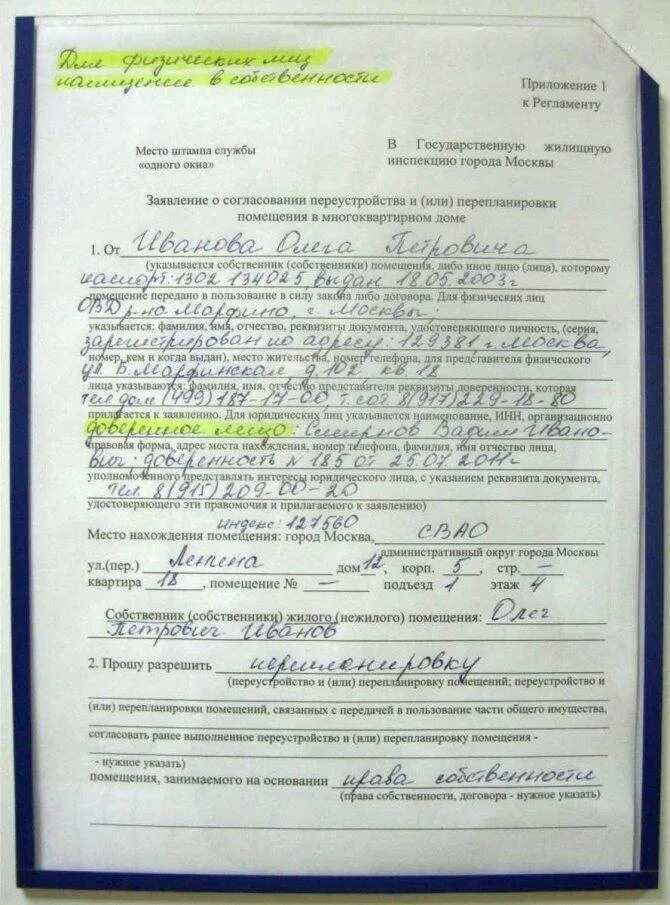 Для физических лиц
помещение в собственности
Приложение 1
к Регламенту
Место штампа службы
«одного окна»
В Государственную жилищную
инспекцию города Москвы
Заявление о согласовании переустройства и (или) перепланировки
помещения в многоквартирном доме
1. От Иванова Олега Петровича
(указывается собственник (собственники) помещения, либо иное лицо (лица), которому
паспорт: 1302 134025 выдан 18.05.2003г
помещение передано в пользование в силу закона либо договора. Для физических лиц
ОВД р-на Марфино, г. Москвы;
указывается: фамилия, имя, отчество, реквизиты документа, удостоверяющего личность, (серия,
зарегистрирован по адресу: 129381, г. Москва,
номер, кем и когда выдан), место жительства, номер телефона, для представителя физического
ул. Б. Марфинская д. 102 кв. 18
лица указываются: фамилия, имя, отчество представителя реквизиты доверенности, которая
тел дом (499) 187-17-00 т. сот 8(917) 229-18-80
прилагается к заявлению). Для юридических лиц указывается наименование, ИНН, организационно
доверенное лицо: Смирнов Вадим Ивано-
правовая форма, адрес места нахождения, номер телефона, фамилия, имя отчество лица,
вич; доверенность N 185 от 25.07.2011г
уполномоченного представлять интересы юридического лица, с указанием реквизита документа,
тел. 8(915) 209-00-20
удостоверяющего эти правомочия и прилагаемого к заявлению)
индекс: 127560
Место нахождения помещения: город Москва, СВАО
административный округ города Москвы
ул.(пер.) Ленина дом 12, корп. 5, стр. —
квартира 18, помещение № — подъезд 1 этаж 4
Собственник (собственники) жилого (нежилого) помещения: Олег
Петрович Иванов
2. Прошу разрешить перепланировку
(переустройство и (или) перепланировку помещений; переустройство и
(или) перепланировку помещений, связанных с передачей в пользование части общего имущества,
согласовать ранее выполненное переустройство и (или) перепланировку помещения -
- нужное указать)
помещения, занимаемого на основании права собственности
(права собственности, договора - нужное указать)